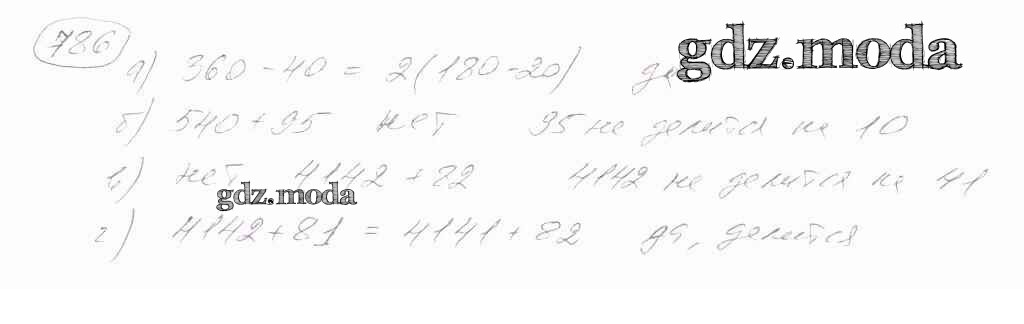 786
gdz.moda
а) 360 - 40 = 2(180-20)
б) 540 + 95 нет 95 не делится на 10
в) нет 4142 + 82 4142 не делится на 41
gdz.moda
г) 4142 + 81 = 4141 + 82 да, делится